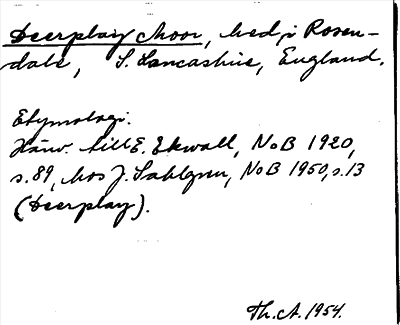 Deerplay Moor, hed i Rosen-
dale, S. Lancashire, England.
Etymologi.
Hänv. till E. Ekwall, NoB 1920,
s. 89, hos J. Sahlgren, NoB 1950, s. 13
(Deerplay).
Th. A. 1954.